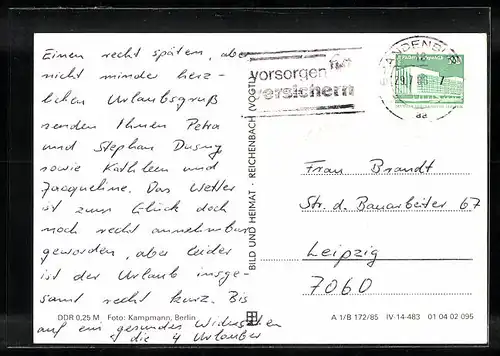 Einen recht späten, aber
nicht minder herz-
lichen Urlaubsgruß
senden Ihnen Petra
und Stephan
sowie Kathleen und
Jacqueline. Das Wetter
ist zum Glück doch
noch recht annehmbar
geworden, aber leider
ist der Urlaub insge-
samt recht kurz. Bis
auf ein gesundes Wiedersehen
die 4 Urlauber
DDR 0,25 M Foto: Kampmann, Berlin
BILD UND HEIMAT · REICHENBACH (VOGTL)
vorsorgen
versichern
Frau Brandt
Str. d. Bauarbeiter 67
Leipzig
7060
A 1/B 172/85 IV-14-483 01 04 02 095